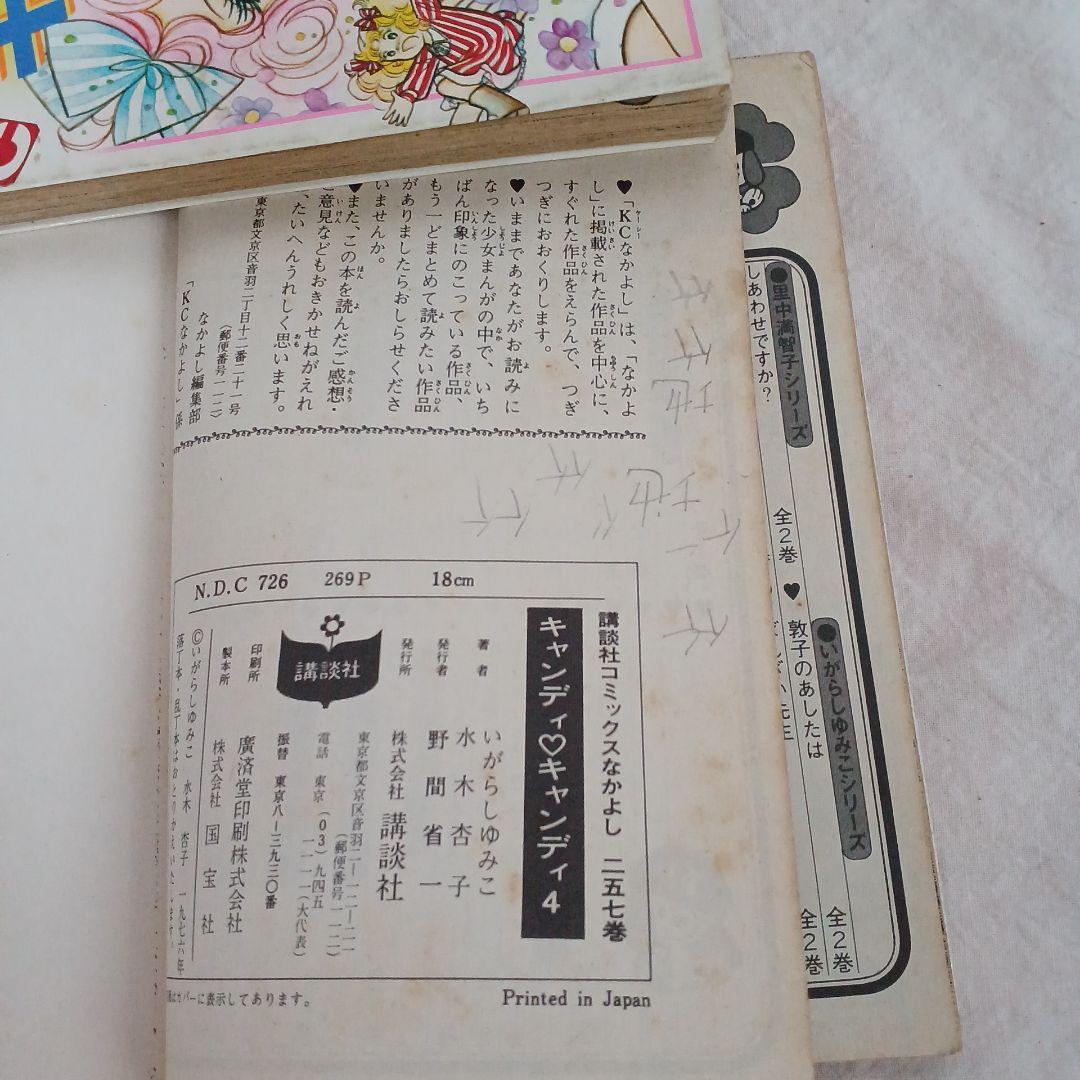 ♥「KCなかよし」は、「なかよ
し」に掲載された作品を中心に、
すぐれた作品をえらんで、つぎ
つぎにおおくりします。
♥いままであなたがお読みに
なった少女まんがの中で、いち
ばん印象にのこっている作品、
もう一どまとめて読みたい作品
がありましたらおしらせくださ
いませんか。
♥また、この本を読んだご感想・
ご意見などもおきかせねがえれ
、たいへんうれしく思います。
東京都文京区音羽二丁目十二番二十一号
(郵便番号一一二)
なかよし編集部
「KCなかよし」係
N.D.C 726 269P 18cm
講談社コミックスなかよし 二五七巻
キャンディ♡キャンディ4
著者 いがらしゆみこ
水木杏子
発行者 野間省一
発行所 株式会社 講談社
東京都文京区音羽二―一二―二一
(郵便番号一一二)
電話 東京(03)九四五
一一一一(大代表)
振替 東京八―三九三〇番
講談社
印刷所 廣済堂印刷株式会社
製本所 株式会社 国宝社
©いがらしゆみこ 水木杏子 一九七六年
落丁本・乱丁本はおとりかえいたします。
はカバーに表示してあります。
Printed in Japan
●里中満智子シリーズ
しあわせですか?
全2巻
♥敦子のあしたは
●いがらしゆみこシリーズ
全2巻
全2巻
竹
竹
地
竹
地
竹
竹
竹